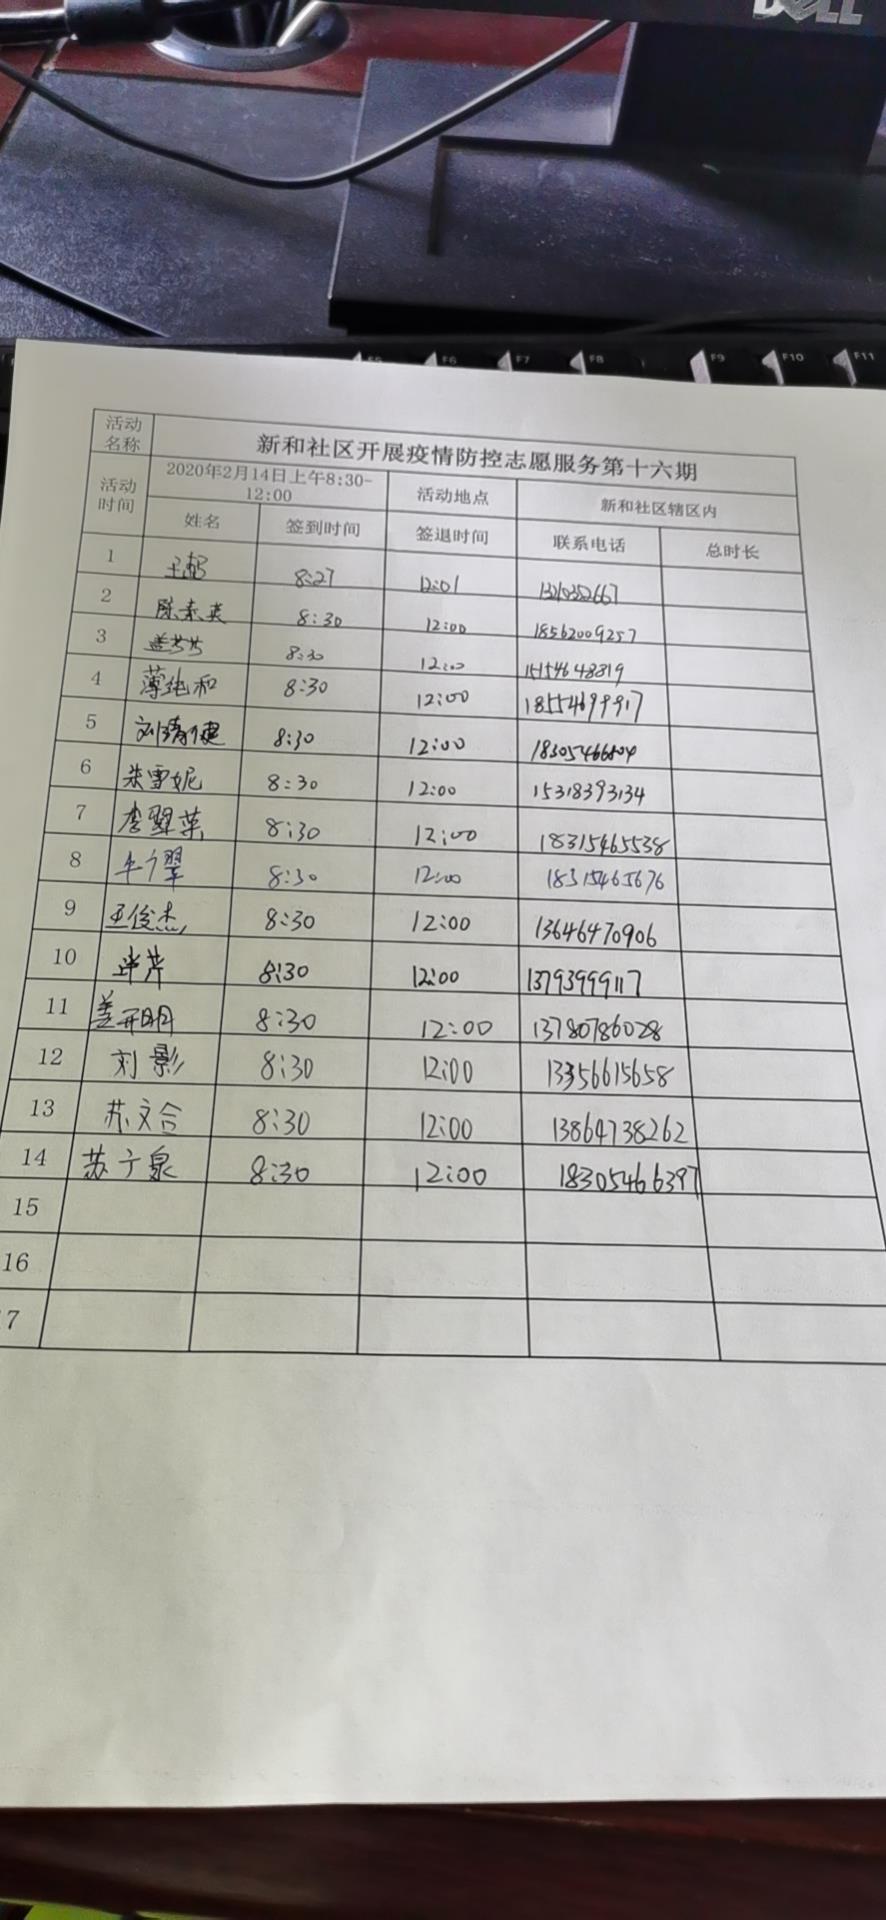 DELL
F5 F6 F7 F8 F9 F10 F11
活动名称 新和社区开展疫情防控志愿服务第十六期
活动时间 2020年2月14日上午8:30-12:00 活动地点 新和社区辖区内
姓名 签到时间 签退时间 联系电话 总时长
1 8:27 12:01
2 陈素英 8:30 12:00 18562009257
3 盖芳芳 8:30 12:00 15154648819
4 薄纯和 8:30 12:00 18554699917
5 刘清健 8:30 12:00 18305466804
6 朱雪妮 8:30 12:00 15318393134
7 李翠苹 8:30 12:00 18315465538
8 8:30 12:00 18315465676
9 王俊杰 8:30 12:00 13646470906
10 8:30 12:00 13793999117
11 盖开明 8:30 12:00 13780786028
12 刘影 8:30 12:00 13356615658
13 苏文合 8:30 12:00 13864738262
14 苏广泉 8:30 12:00 18305466397
15
16
7